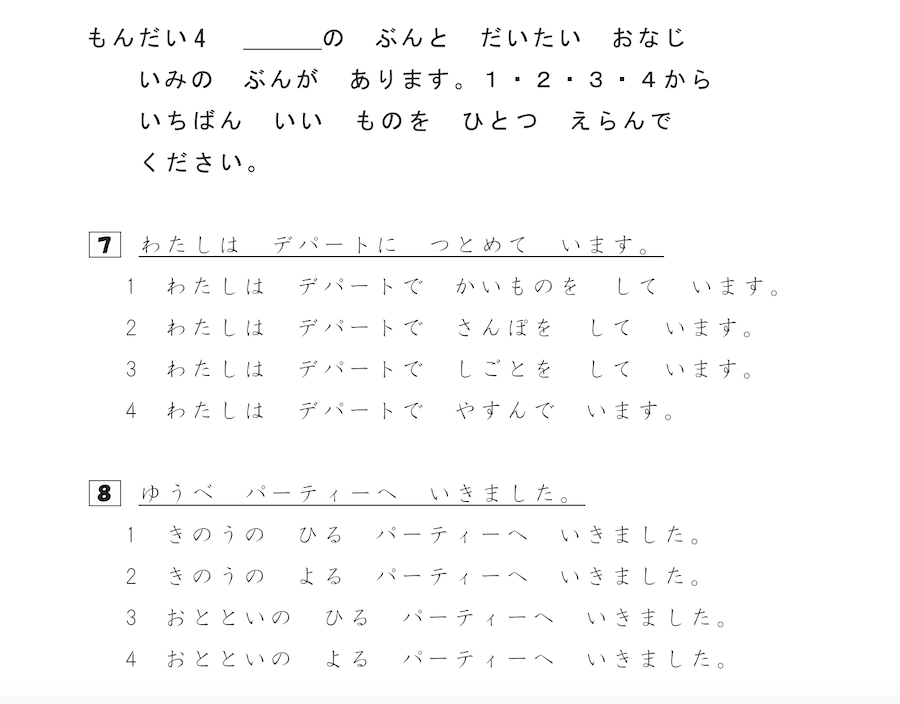 もんだい4　＿＿＿の　ぶんと　だいたい　おなじ
いみの　ぶんが　あります。1・2・3・4から
いちばん　いい　ものを　ひとつ　えらんで
ください。
7　わたしは　デパートに　つとめて　います。
1　わたしは　デパートで　かいものを　して　います。
2　わたしは　デパートで　さんぽを　して　います。
3　わたしは　デパートで　しごとを　して　います。
4　わたしは　デパートで　やすんで　います。
8　ゆうべ　パーティーへ　いきました。
1　きのうの　ひる　パーティーへ　いきました。
2　きのうの　よる　パーティーへ　いきました。
3　おとといの　ひる　パーティーへ　いきました。
4　おとといの　よる　パーティーへ　いきました。